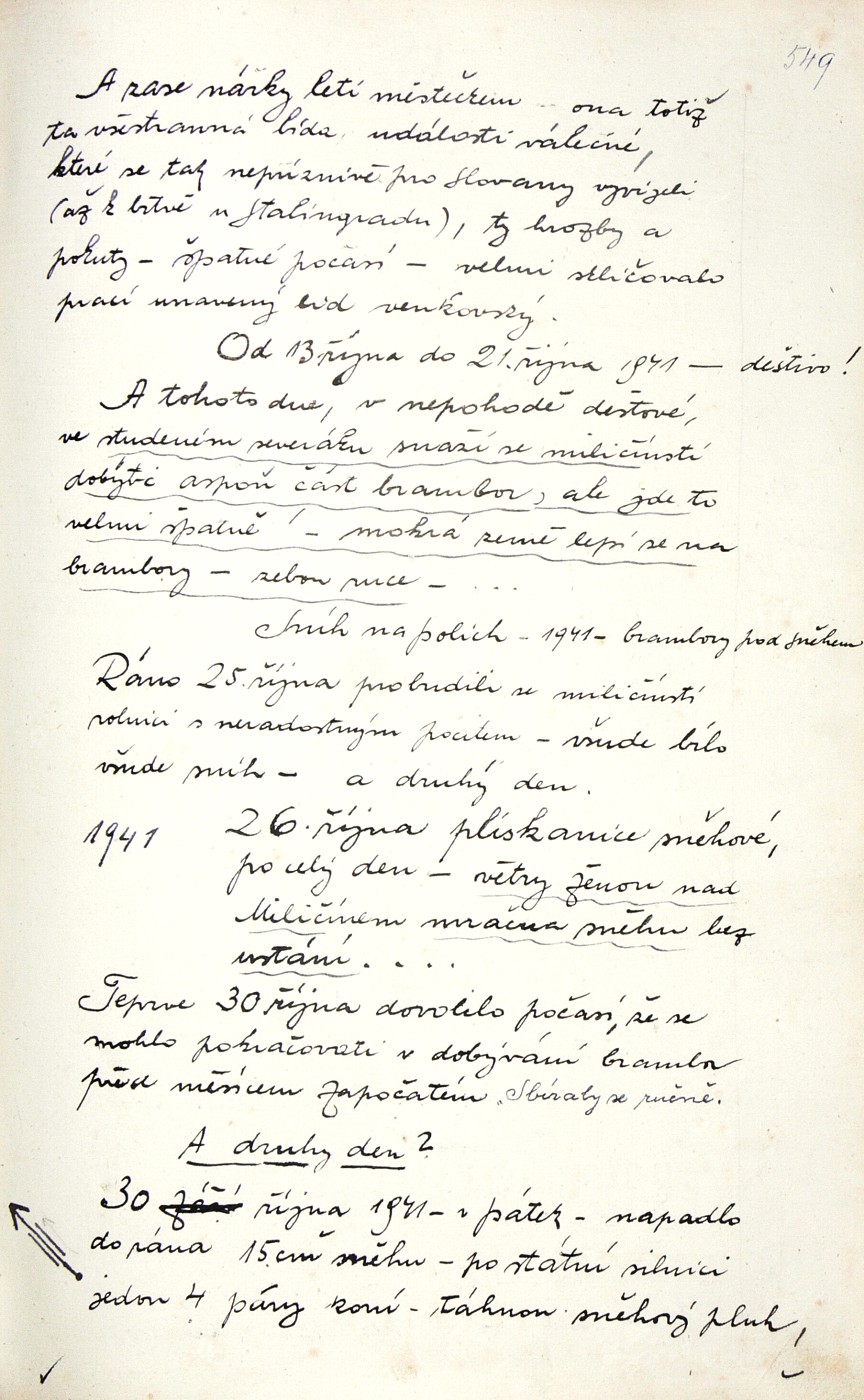 549
A zase nářky letí městečkem – ona totiž
ta všestranná bída, události válečné,
které se tak nepříznivě pro Slovany vyvíjeli
(až k bitvě u Stalingradu), ty hrozby a
pokuty – špatné počasí – velmi skličovalo
prací unavený lid venkovský.
Od 13 října do 21. října 1941 — deštivo!
A tohoto dne, v nepohodě dešťové,
ve studeném severáku snaží se miličínští
dobýti aspoň část brambor, ale jde to
velmi špatně! – mokrá země lepí se na
brambory – zebou ruce – ...
Sníh na polích – 1941 – brambory pod sněhem
Ráno 25. října probudili se miličínští
rolníci s neradostným pocitem – všude bílo
všude sníh – a druhý den.
1941 26. října plískanice sněhové,
po celý den – větry ženou nad
Miličínem mračna sněhu bez
ustání. . . .
Teprve 30 října dovolilo počasí, že se
mohlo pokračovati v dobývání brambor
před měsícem započatém. Sbíraly se ručně.
A druhy den?
30 září října 1941 – v pátek – napadlo
do rána 15 cm sněhu – po státní silnici
jedou 4 páry koní – táhnou sněhový pluh,